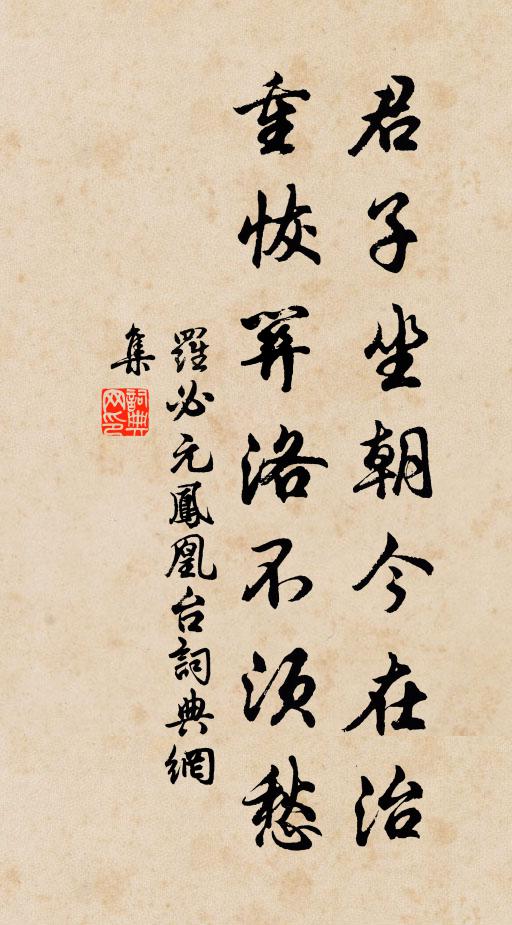 君子坐朝今在治
重恢笄洛不须愁
羅必元鳳凰台詞典網
集
詞典網印